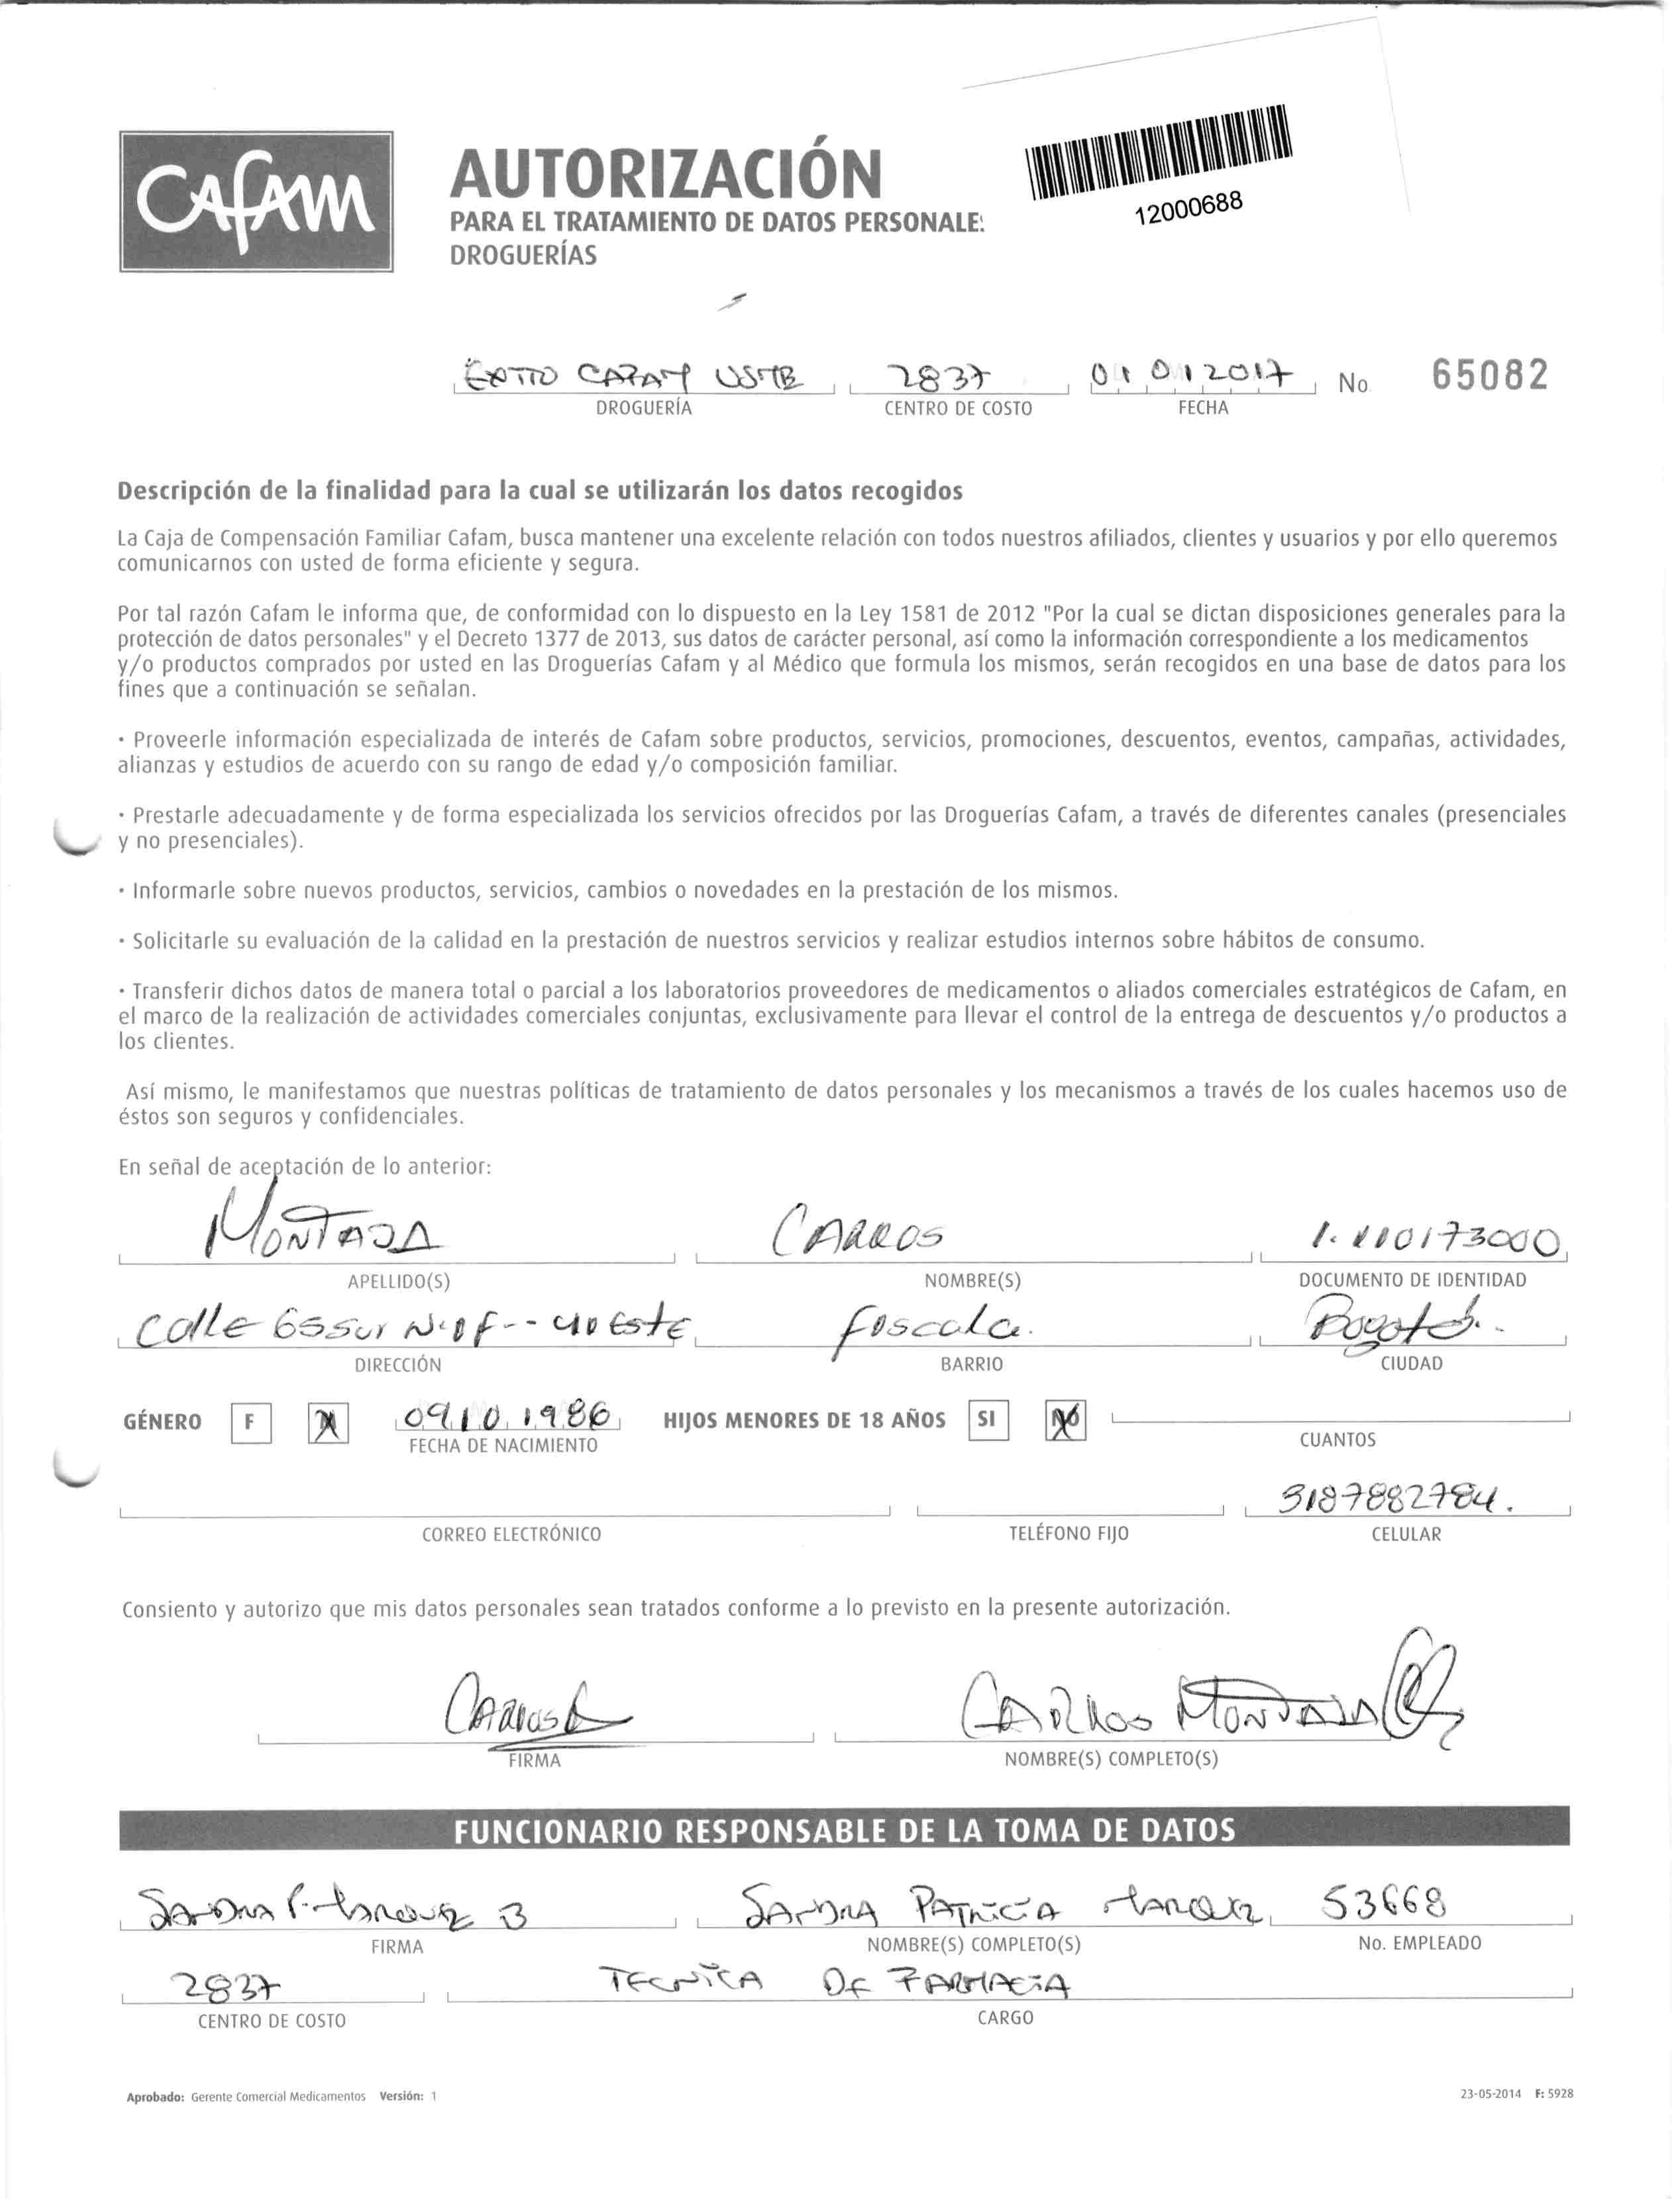 Cafam
AUTORIZACIÓN
PARA EL TRATAMIENTO DE DATOS PERSONALE
DROGUERÍAS
12000688
CAFAM 2837 01 01 2017 No. 65082
DROGUERÍA CENTRO DE COSTO FECHA
Descripción de la finalidad para la cual se utilizarán los datos recogidos
La Caja de Compensación Familiar Cafam, busca mantener una excelente relación con todos nuestros afiliados, clientes y usuarios y por ello queremos
comunicarnos con usted de forma eficiente y segura.
Por tal razón Cafam le informa que, de conformidad con lo dispuesto en la Ley 1581 de 2012 "Por la cual se dictan disposiciones generales para la
protección de datos personales" y el Decreto 1377 de 2013, sus datos de carácter personal, así como la información correspondiente a los medicamentos
y/o productos comprados por usted en las Droguerías Cafam y al Médico que formula los mismos, serán recogidos en una base de datos para los
fines que a continuación se señalan.
· Proveerle información especializada de interés de Cafam sobre productos, servicios, promociones, descuentos, eventos, campañas, actividades,
alianzas y estudios de acuerdo con su rango de edad y/o composición familiar.
· Prestarle adecuadamente y de forma especializada los servicios ofrecidos por las Droguerías Cafam, a través de diferentes canales (presenciales
y no presenciales).
· Informarle sobre nuevos productos, servicios, cambios o novedades en la prestación de los mismos.
· Solicitarle su evaluación de la calidad en la prestación de nuestros servicios y realizar estudios internos sobre hábitos de consumo.
· Transferir dichos datos de manera total o parcial a los laboratorios proveedores de medicamentos o aliados comerciales estratégicos de Cafam, en
el marco de la realización de actividades comerciales conjuntas, exclusivamente para llevar el control de la entrega de descuentos y/o productos a
los clientes.
Así mismo, le manifestamos que nuestras políticas de tratamiento de datos personales y los mecanismos a través de los cuales hacemos uso de
éstos son seguros y confidenciales.
En señal de aceptación de lo anterior:
CARLOS 1.110173000
APELLIDO(S) NOMBRE(S) DOCUMENTO DE IDENTIDAD
Calle 65Sur Este Bogotá
DIRECCIÓN BARRIO CIUDAD
GÉNERO F M 09 10 1986 HIJOS MENORES DE 18 AÑOS SI NO
FECHA DE NACIMIENTO CUANTOS
3187882784.
CORREO ELECTRÓNICO TELÉFONO FIJO CELULAR
Consiento y autorizo que mis datos personales sean tratados conforme a lo previsto en la presente autorización.
CARLOS
FIRMA NOMBRE(S) COMPLETO(S)
FUNCIONARIO RESPONSABLE DE LA TOMA DE DATOS
SANDRA P. SANDRA PATRICIA 53668
FIRMA NOMBRE(S) COMPLETO(S) No. EMPLEADO
2837 TECNICA DE FARMACIA
CENTRO DE COSTO CARGO
Aprobado: Gerente Comercial Medicamentos Versión: 1 23-05-2014 F: 5928